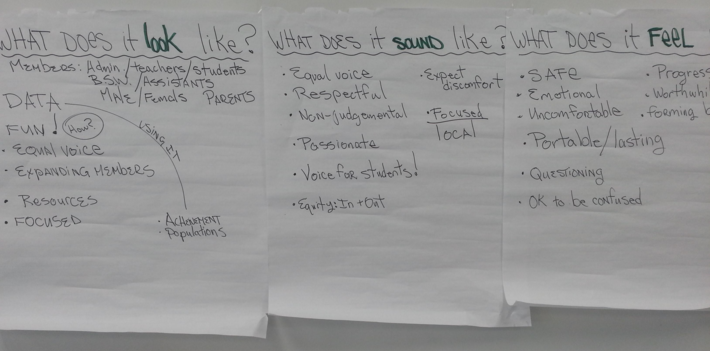 WHAT DOES it look like?
MEMBERS: Admin/teachers/students
BSW/ASSISTANTS
MALE/Females PARENTS
DATA
FUN! How?
USING IT
• EQUAL VOICE
• EXPANDING MEMBERS
• Resources
• FOCUSED
• ACHIEVEMENT
• Populations
WHAT DOES it SOUND like?
• Equal voice
• Respectful
• Non-judgemental
• Passionate
• Voice for students!
• Equity: In + Out
• Expect discomfort
• Focused
LOCAL
WHAT DOES it FEEL
• SAFE
• Emotional
• Uncomfortable
• Portable/lasting
• Questioning
• OK to be confused
• Progress
• Worthwhi
• Forming b